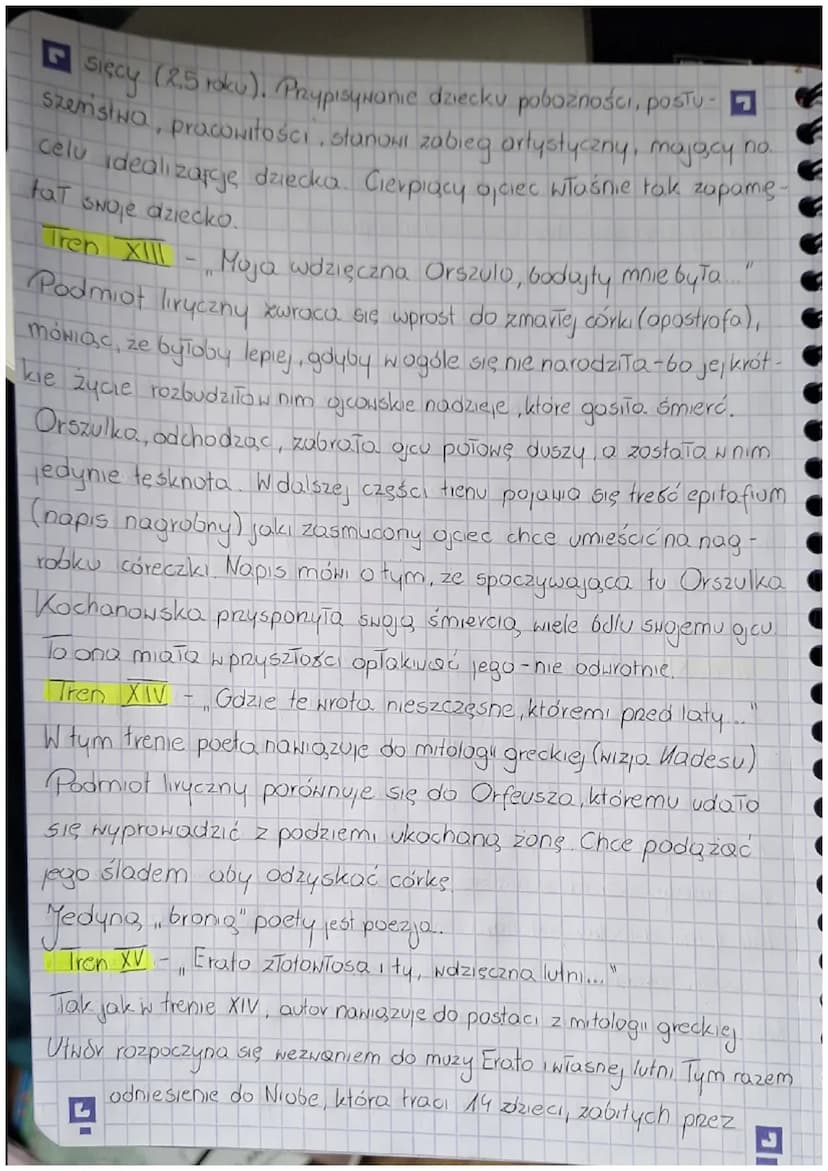 sięcy (2,5 roku). Przypisywanie dziecku pobożności, posłu-
szeństwa, pracowitości, stanowi zabieg artystyczny, mający na
celu idealizację dziecka. Cierpiący ojciec właśnie tak zapamę-
tał swoje dziecko.
Tren XIII - „Moja wdzięczna Orszulo, bodajty mnie była..."
Podmiot liryczny zwraca się wprost do zmarłej córki (apostrofa),
mówiąc, że byłoby lepiej, gdyby wogóle się nie narodziła - bo jej krót-
kie życie rozbudziło w nim ojcowskie nadzieje, które gasiła śmierć.
Orszulka, odchodząc, zabrała ojcu połowę duszy, a została w nim
jedynie tęsknota. W dalszej części trenu pojawia się treść epitafium
(napis nagrobny) jaki zasmucony ojciec chce umieścić na nag-
robku córeczki. Napis mówi o tym, ze spoczywająca tu Orszulka
Kochanowska przysponyła swoją śmiercią, wiele bólu swojemu ojcu.
To ona miała w przyszłości opłakiwać jego - nie odwrotnie.
Tren XIV - „Gdzie te wrota nieszczęsne, któremi przed laty..."
W tym trenie poeta nawiązuje do mitologii greckiej (wizja Hadesu)
Podmiot liryczny porównuje się do Orfeusza, któremu udało
się wyprowadzić z podziemi ukochaną żonę. Chce podążać
jego śladem aby odzyskać córkę.
Jedyną „bronią" poety jest poezja.
Tren XV - „Erato złotowłosa i ty, wdzięczna lutni..."
Tak jak w trenie XIV, autor nawiązuje do postaci z mitologii greckiej
Utwór rozpoczyna się wezwaniem do muzy Erato i własnej lutni. Tym razem
odniesienie do Niobe, która traci 14 dzieci, zabitych przez